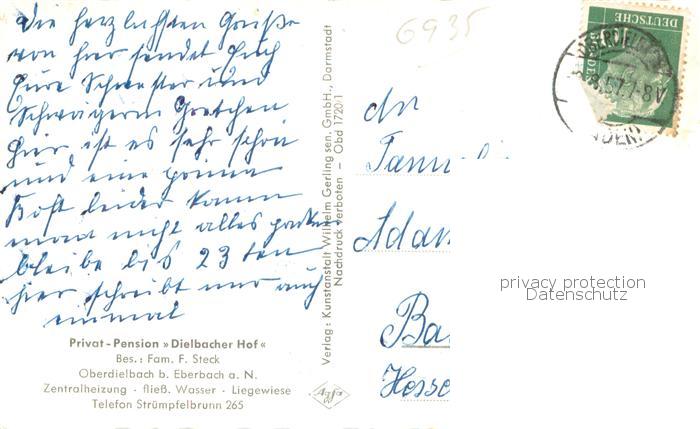 Die herzlichsten Grüße
von hier sendet Euch
Eure Schwester und
Schwägerin Gretchen
hier ist es sehr schön
und eine prima
Kost leider kann
man nicht alles
bleibe bis 23 ten
hier schreibt mir auch
einmal
Privat-Pension »Dielbacher Hof«
Bes.: Fam. F. Steck
Oberdielbach b. Eberbach a. N.
Zentralheizung · fließ. Wasser · Liegewiese
Telefon Strümpfelbrunn 265
Verlag: Kunstanstalt Wilhelm Gerling sen. GmbH., Darmstadt
Nachdruck verboten – Obd 1720/1
Agfa
6935
DEUTSCHE
57.7-8
An
Fami
Adam
Ba
Hesse
privacy protection
Datenschutz